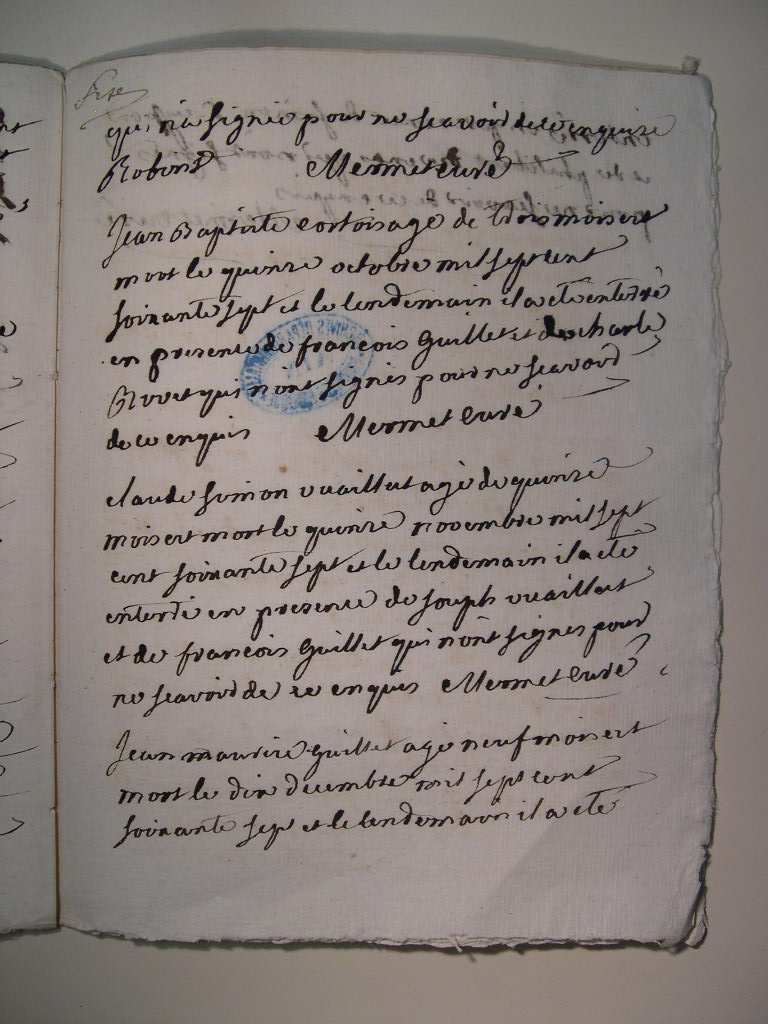 qui n'a signée pour ne scavoir de ce enquise
Mermet curé
Jean Baptiste Cortois age de trois mois est
mort le quinze octobre mil sept cent
soixante sept et le lendemain il a eté enterré
en presence de françois Guillet et de charle
Rovet qui n'ont signés pour ne scavoir
de ce enquis Mermet curé
claude simon vuaillat agé de quinze
mois est mort le quinze novembre mil sept
cent soixante sept et le lendemain il a eté
enterré en presence de joseph vuaillat
et de francois Guillet qui n'ont signés pour
ne scavoir de ce enquis Mermet curé
Jean maurize guillet agé neuf mois est
mort le dix decembre mil sept cent
soixante sept et le lendemain il a eté